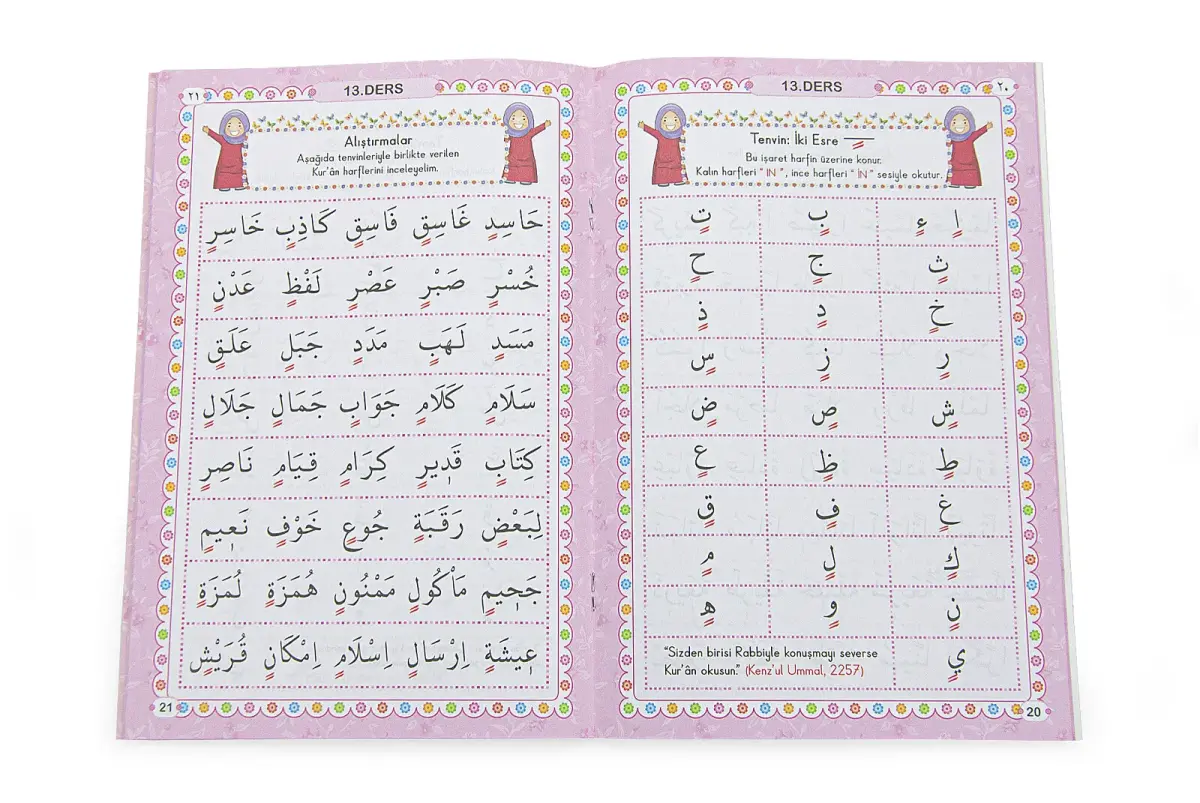 ٢٠
13.DERS
Tenvin: İki Esre ـٍ
Bu işaret harfin üzerine konur.
Kalın harfleri “ IN ” , ince harfleri “ İN ” sesiyle okutur.
إٍ ءٍ بٍ تٍ
ثٍ جٍ حٍ
خٍ دٍ ذٍ
رٍ زٍ سٍ
شٍ صٍ ضٍ
طٍ ظٍ عٍ
غٍ فٍ قٍ
كٍ لٍ مٍ
نٍ وٍ هٍ
يٍ
“Sizden birisi Rabbiyle konuşmayı severse
Kur’ân okusun.” (Kenz’ul Ummal, 2257)
20
٢١
13.DERS
Alıştırmalar
Aşağıda tenvinleriyle birlikte verilen
Kur’ân harflerini inceleyelim.
حَاسِدٍ غَاسِقٍ فَاسِقٍ كَاذِبٍ خَاسِرٍ
خُسْرٍ صَبْرٍ عَصْرٍ لَفْظٍ عَدْنٍ
مَسَدٍ لَهَبٍ مَدَدٍ جَبَلٍ عَلَقٍ
سَلَامٍ كَلَامٍ جَوَابٍ جَمَالٍ جَلَالٍ
كِتَابٍ قَدِيرٍ كِرَامٍ قِيَامٍ نَاصِرٍ
لِبَعْضٍ رَقَبَةٍ جُوعٍ خَوْفٍ نَعِيمٍ
جَحِيمٍ مَأْكُولٍ مَمْنُونٍ هُمَزَةٍ لُمَزَةٍ
عِيشَةٍ اِرْسَالٍ اِسْلَامٍ اِمْكَانٍ قُرَيْشٍ
21